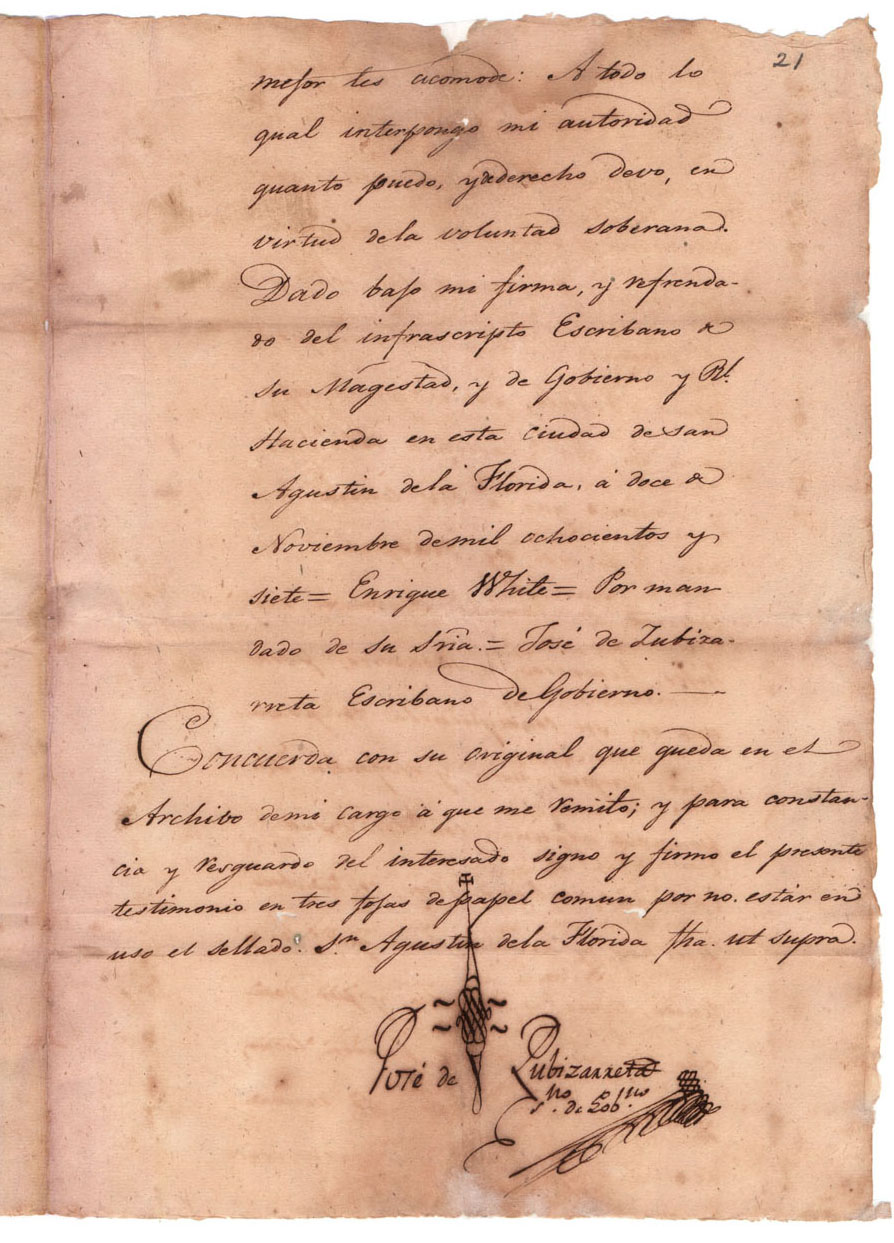 21
mejor les acomode: A todo lo
qual interpongo mi autoridad
quanto puedo, y a derecho devo, en
virtud dela voluntad soberana.
Dado bajo mi firma, y refrenda-
do del infrascripto Escribano de
su Magestad, y de Gobierno y Rl.
Hacienda en esta ciudad de San
Agustin dela Florida, á doce de
Noviembre demil ochocientos y
siete = Enrique White = Por man
dado de su Sria. = José de Zubiza-
rreta Escribano de Gobierno. —
Concuerda con su original que queda en el
Archibo demi cargo á que me remito; y para constan-
cia y resguardo del interesado signo y firmo el presente
testimonio en tres fojas de papel comun por no estár en
uso el sellado. Sn. Agustin dela Florida fha. ut supra.
José de Zubizarreta
Sno. de Gobno.